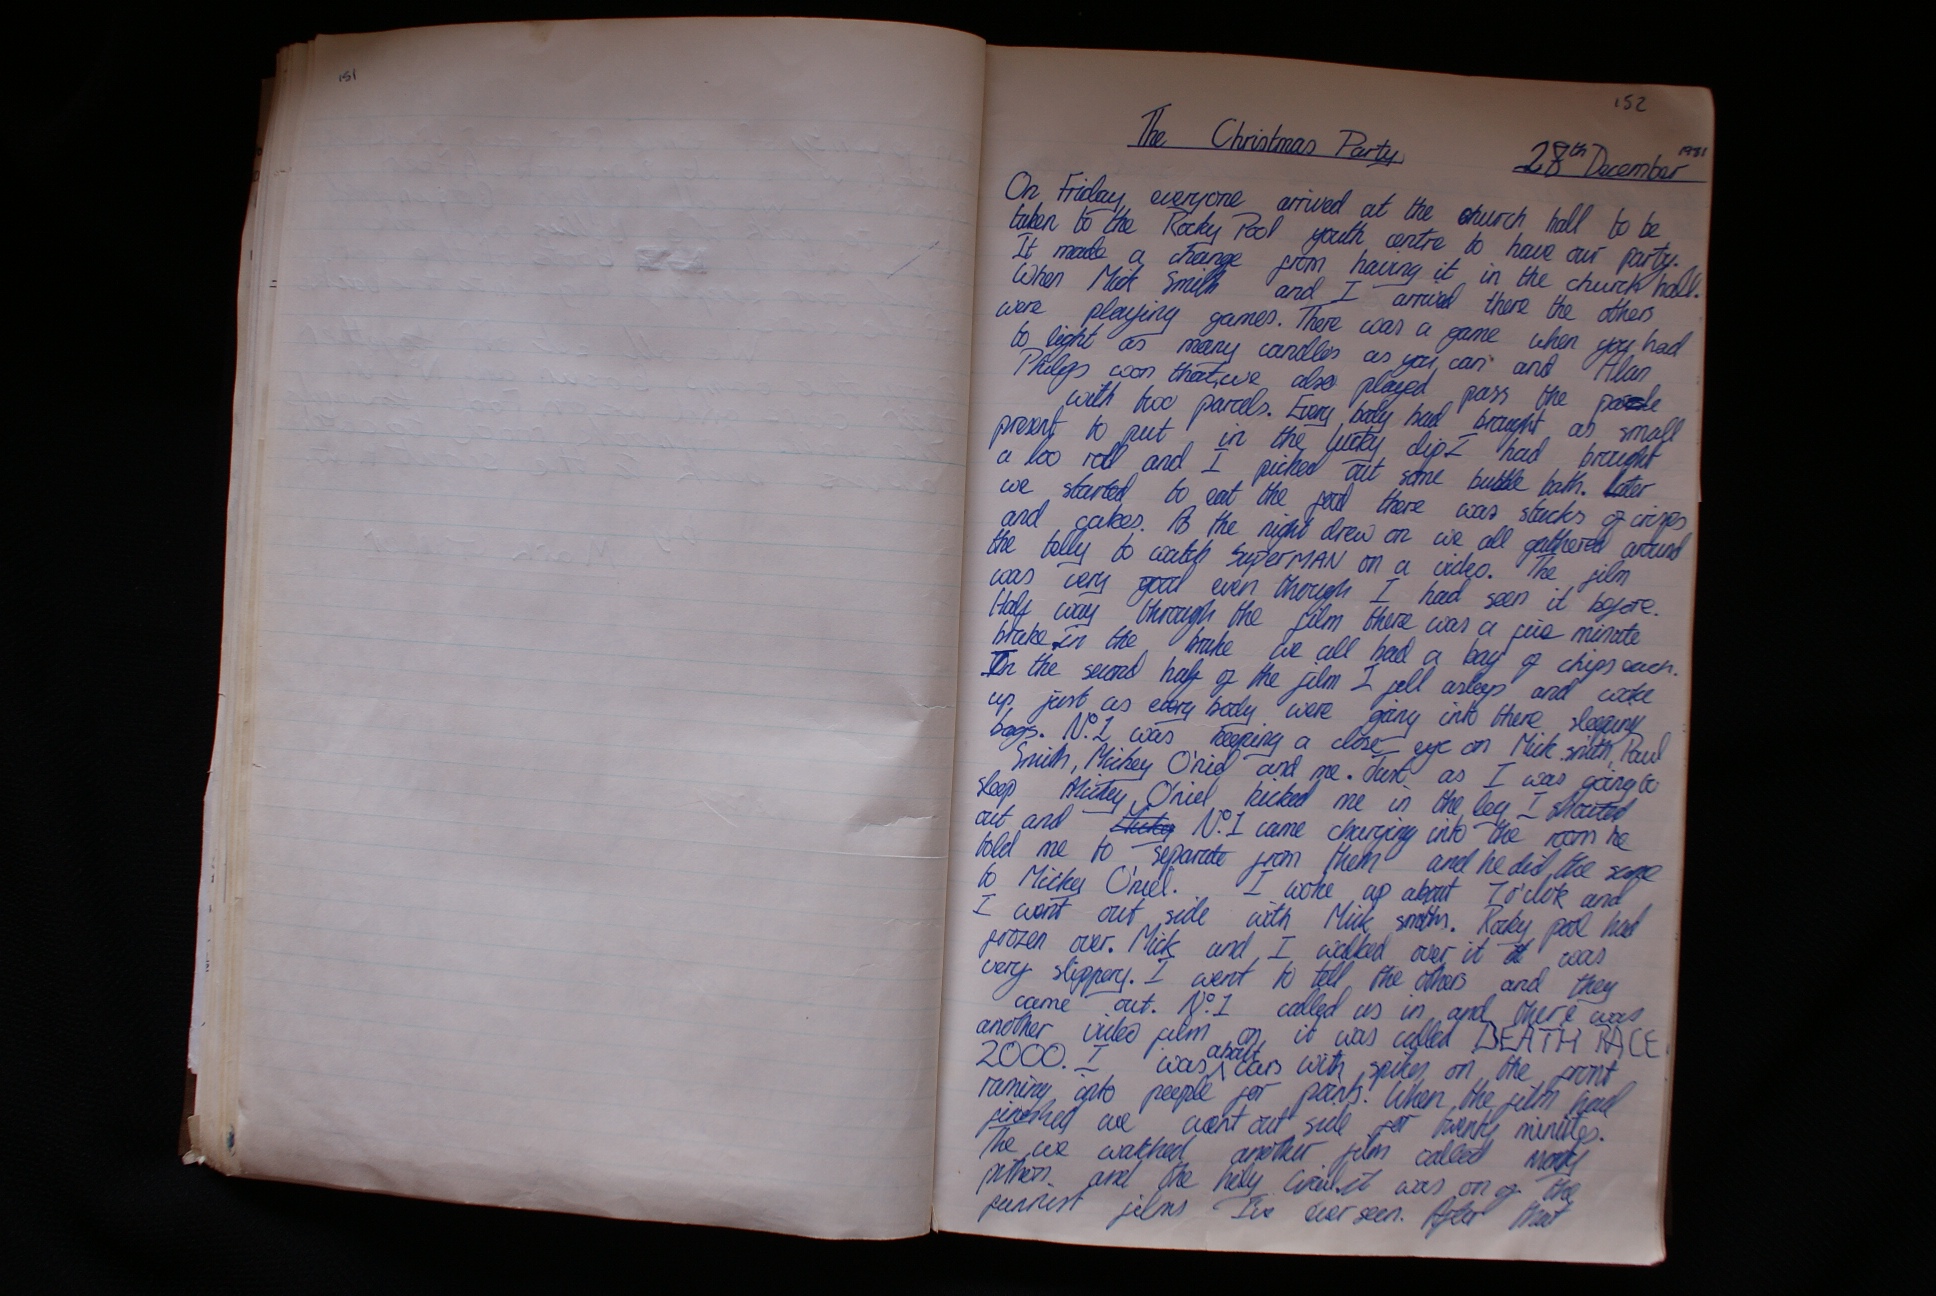 151
152
The Christmas Party
28th December 1981
On Friday everyone arrived at the church hall to be
taken to the Rocky Pool youth centre to have our party.
It made a change from having it in the church hall.
When Mick Smith and I arrived there the others
were playing games. There was a game when you had
to light as many candles as you can and Alan
Philips won that, we also played pass the
with two parcels. Every body had brought as small
present to put in the lucky dip I had brought
a loo roll and I picked out some bubble bath. Later
we started to eat the food there was stacks of crisps
and cakes. As the night drew on we all gathered around
the telly to watch SupERMAN on a video. The film
was very good even though I had seen it before.
Half way through the film there was a five minute
brake. In the brake we all had a bag of chips each.
In the second half of the film I fell asleep and woke
up just as every body were going into there sleeping
bags. No.1 was keeping a close eye on Mick smith, Paul
Smith, Mickey O'niel and me. Just as I was going to
sleep Mickey O'niel kicked me in the leg I shouted
out and Mickey No.1 came charging into the room he
told me to separate from them and he did the same
to Mickey O'niel. I woke up about 7 o'clok and
I went out side with Mick smith. Rocky pool had
frozen over. Mick and I walked over it it was
very slippery. I went to tell the others and they
came out. No.1 called us in and there was
another video film on it was called DEATH RACE
2000. I was about cars with spikes on the front
raming into people for points. When the film had
finished we went out side for twenty minutes.
The we watched another film called monty
python and the holy Grail. it was on of the
funnist films I've ever seen. After that